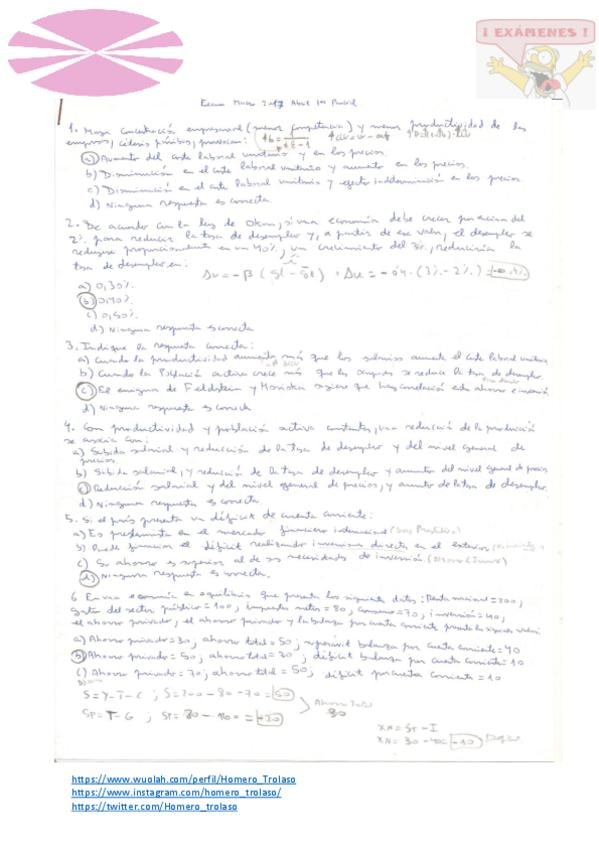 ¡ EXÁMENES !
Examen Macro 2017 Abril 1er Parcial
1. Mayor concentración empresarial (menor competencia) y menor productividad de las
empresas, céteris páribus, provocan:
a) Aumento del coste laboral unitario y en los precios.
b) Disminución en el coste laboral unitario y aumento en los precios.
c) Disminución en el coste laboral unitario y efecto indeterminación en los precios
d) Ninguna respuesta es correcta.
2. De acuerdo con la ley de Okun, si una economía debe crecer por encima del
2% para reducir la tasa de desempleo y, a partir de ese valor, el desempleo se
reduce proporcionalmente en un 40%, un crecimiento del 3%, reduciría la
tasa de desempleo en:
a) 0,30%.
b) 0,40%.
c) 0,50%.
d) Ninguna respuesta es correcta
3. Indique la respuesta correcta:
a) Cuando la productividad aumenta más que los salarios aumenta el coste laboral unitario
b) Cuando la Población activa crece más que los ocupados se reduce la tasa de desempleo.
c) El enigma de Feldstein y Horioka sugiere que hay correlación entre ahorro e inversión
d) Ninguna respuesta es correcta
4. Con productividad y población activa constantes, una reducción de la producción
se asocia con:
a) Subida salarial y reducción de la tasa de desempleo y del nivel general de
precios.
b) Subida salarial, y reducción de la tasa de desempleo y aumento del nivel general de precios
c) Reducción salarial y del nivel general de precios, y aumento de la tasa de desempleo.
d) Ninguna respuesta es correcta.
5. Si el país presenta un déficit de cuenta corriente:
a) Es prestamista en el mercado financiero internacional
b) Puede financiar el déficit realizando inversiones directa en el exterior
c) Su ahorro es superior al de sus necesidades de inversión
d) Ninguna respuesta es correcta.
6 En una economía en equilibrio que presenta los siguientes datos: Renta nacional = 200,
Gastos del sector público = 100, impuestos netos = 80, consumo = 70, inversión = 40,
el ahorro privado, el ahorro privado y la balanza por cuenta corriente
a) Ahorro privado = 30, ahorro total = 50; superávit balanza por cuenta corriente = 40
b) Ahorro privado = 50; ahorro total = 30; déficit balanza por cuenta corriente = 10
c) Ahorro privado = 70; ahorro total = 50; déficit por cuenta corriente = 10
S = Y - T - C ; S = 200 - 80 - 70 = 50
Ahorro Total
30
SP = T - G ; SP = 80 - 100 = -20
XN = ST - I
XN = 30 - 40 = -10
https://www.wuolah.com/perfil/Homero_Trolaso
https://www.instagram.com/homero_trolaso/
https://twitter.com/Homero_trolaso